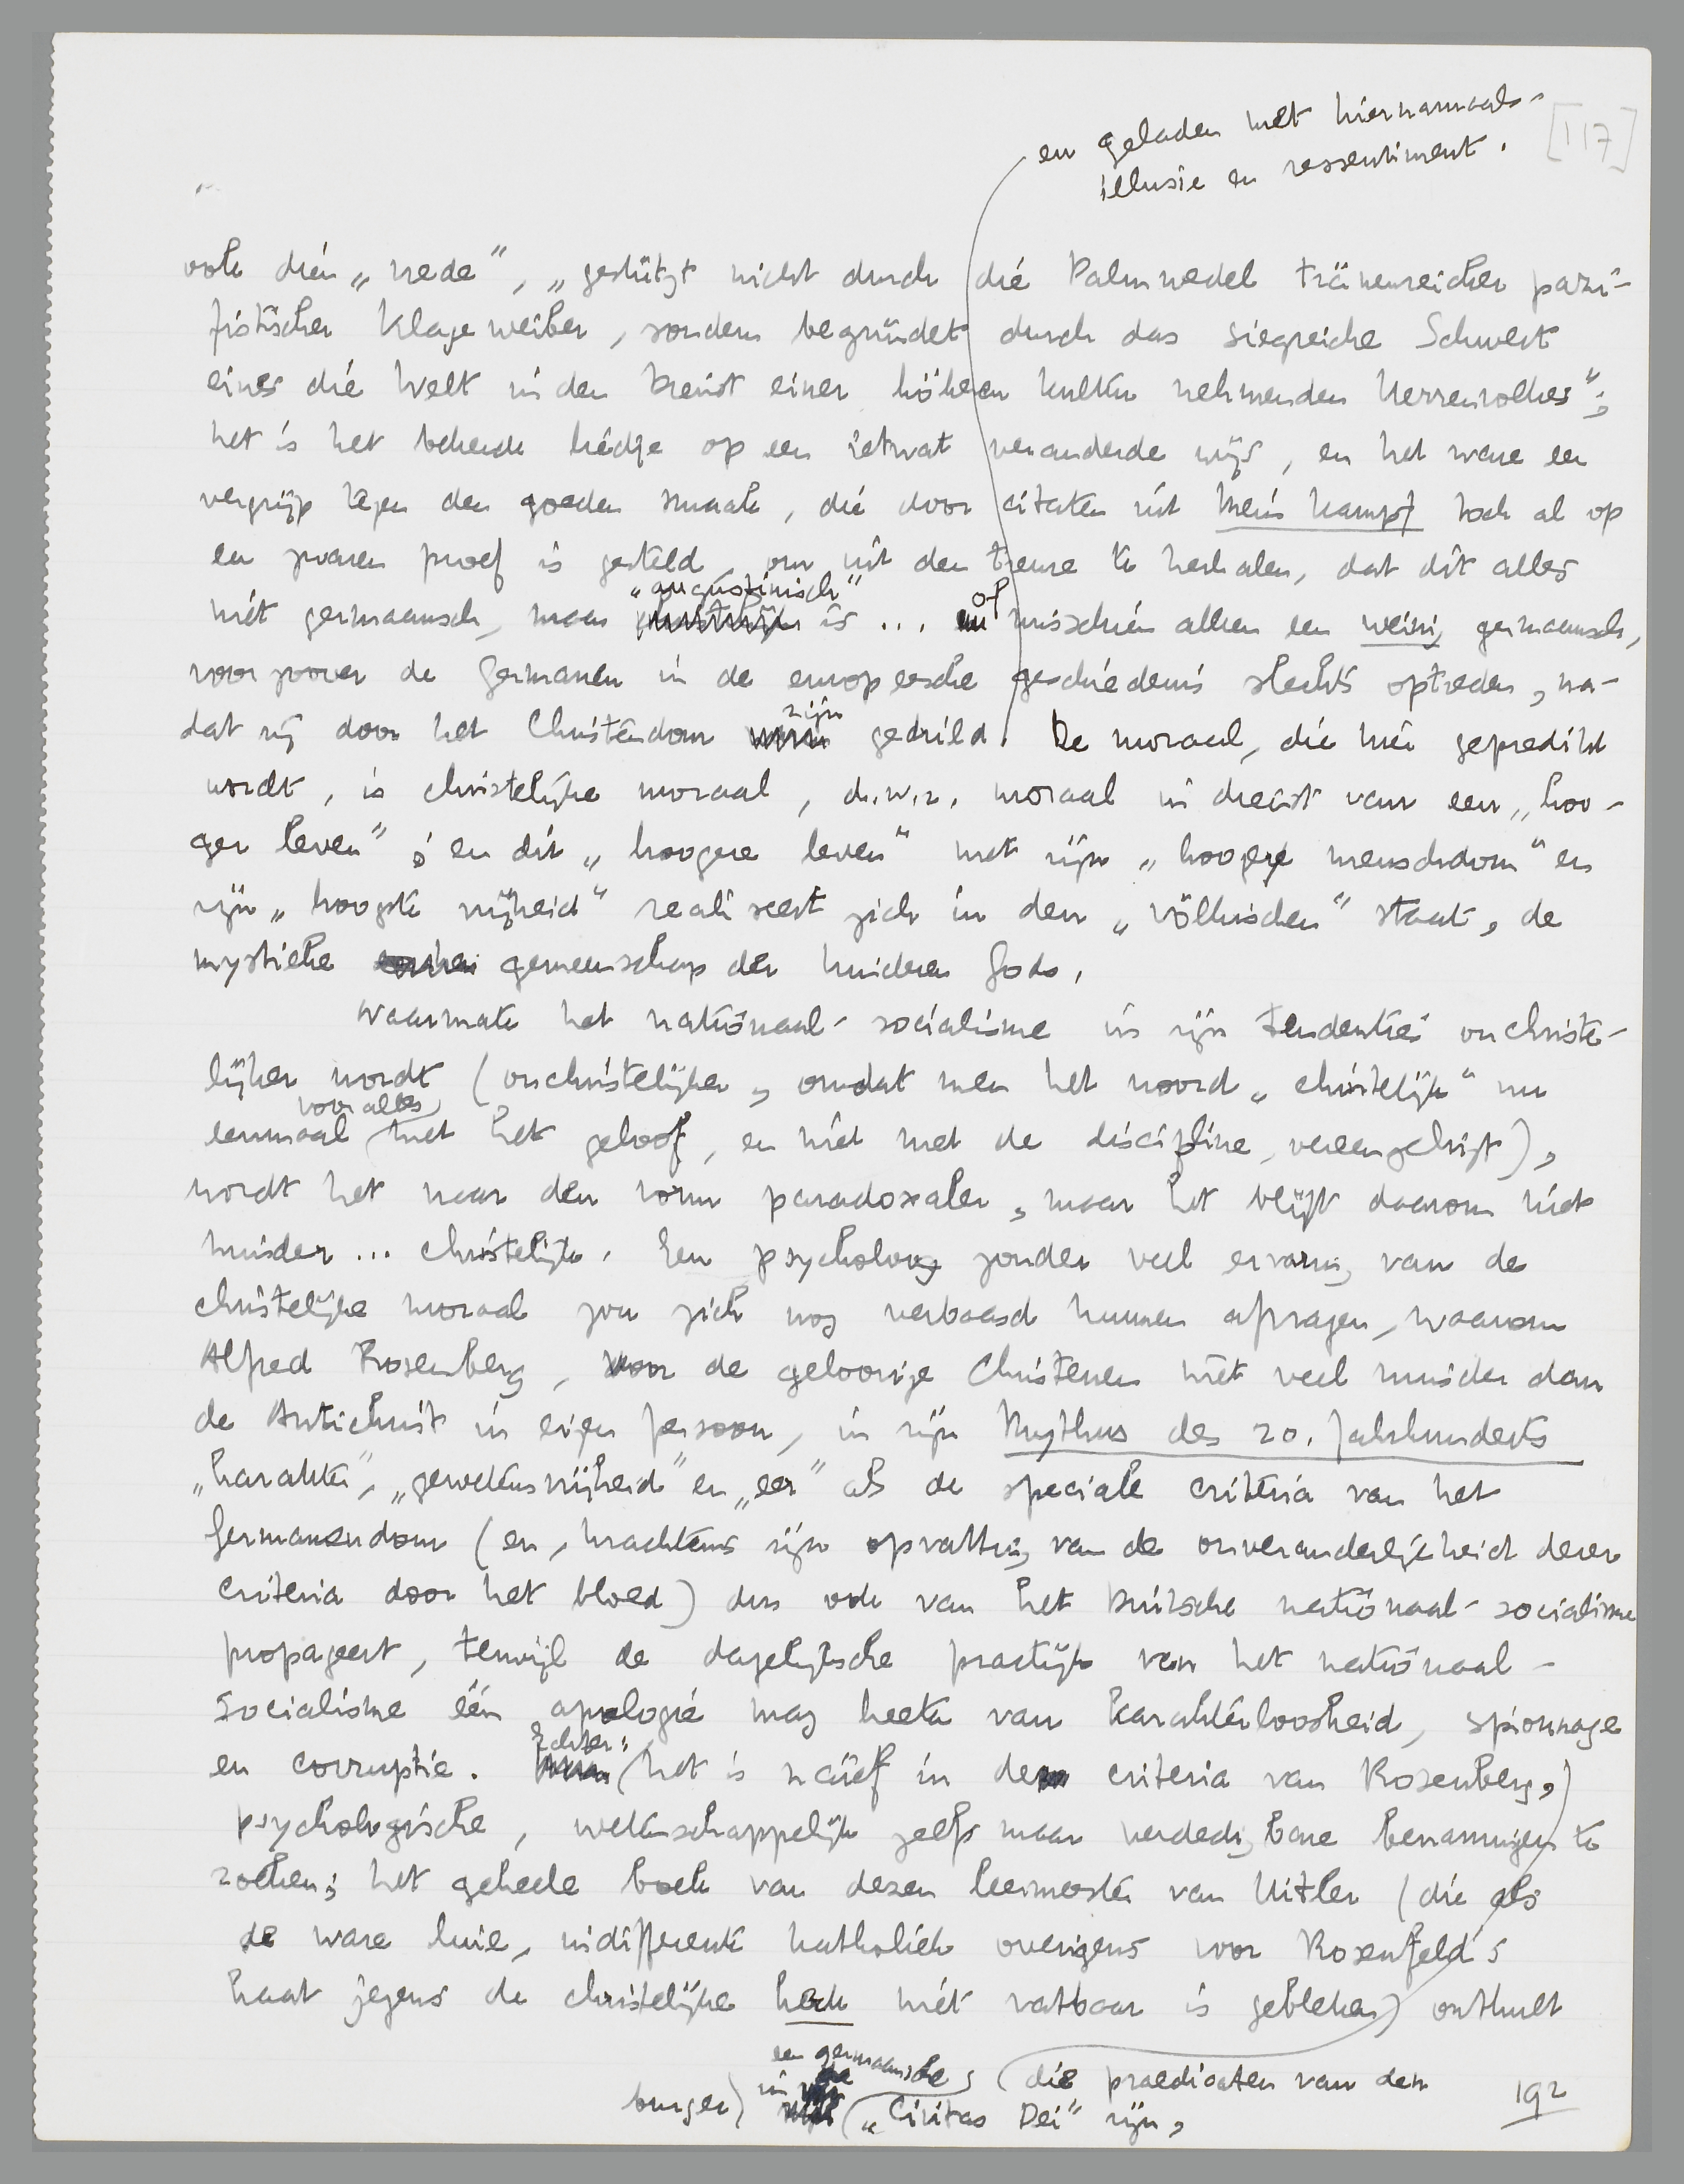 en geladen met hiernamaals-
illusie en ressentiment.
[117]
ook dien „vrede”, „gestützt nicht durch die Palmwedel tränenreicher pazi-
fistischer Klageweiber, sondern begründet durch das siegreiche Schwert
eines die Welt in den Dienst einer höheren Kultur nehmenden Herrenvolkes”;
het is het bekende liedje op een ietwat veranderde wijs, en het ware een
vergrijp tegen den goeden smaak, die door citaten uit Mein Kampf toch al op
een zware proef is gesteld, om uit den treure te herhalen, dat dit alles
„augustinisch”
niet germaansch, maar is ... of misschien alleen een weinig germaansch,
voorzoover de Germanen in de europeesche geschiedenis slechts optreden, na-
dat zij door het Christendom zijn gedrild. De moraal, die hier gepredikt
wordt, is christelijke moraal, d.w.z. moraal in dienst van een „hoo-
ger leven”; en dit „hoogere leven” met zijn „hooger menschdom” en
zijn „hoogste vrijheid” realiseert zich in den „völkischen” staat, de
mystieke gemeenschap der kinderen Gods.
Naarmate het nationaal-socialisme in zijn tendenties onchriste-
lijker wordt (onchristelijker, omdat men het woord „christelijk” nu
vooral
eenmaal met het geloof, en niet met de discipline, vereenzelvigt),
wordt het naar den vorm paradoxaler, maar het blijft daarom niet
minder ... christelijk. Een psycholoog zonder veel ervaring van de
christelijke moraal zou zich nog verbaasd kunnen afvragen, waarom
Alfred Rosenberg, voor de geloovige Christenen niet veel minder dan
de Antichrist in eigen persoon, in zijn Mythus des 20. Jahrhunderts
„karakter”, „gewetensvrijheid” en „eer” als de speciale criteria van het
Germanendom (en, krachtens zijn opvatting van de onveranderlijkheid dezer
criteria door het bloed) dus ook van het Duitsche nationaal-socialisme
propageert, terwijl de dagelijksche practijk van het nationaal-
socialisme één apologie mag heeten van karakterloosheid, spionnage
Echter:
en corruptie. (het is naïef in de criteria van Rosenberg,)
psychologische, wetenschappelijk zelfs maar verdedigbare benamingen te
zoeken; het geheele boek van dezen leermeester van Hitler (die als
de ware luie, indifferente katholiek overigens voor Rosenfeld's
haat jegens de christelijke kerk niet vatbaar is gebleken) onthult
een germaansche
(die praedicaten van den
burger) in de („Civitas Dei” zijn,
192